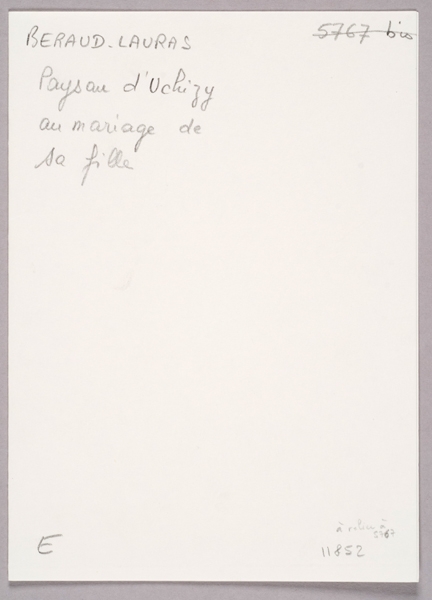 BERAUD-LAURAS
5767 bis
Paysan d'Uchizy
au mariage de
sa fille
E
à relier à
5767
11852